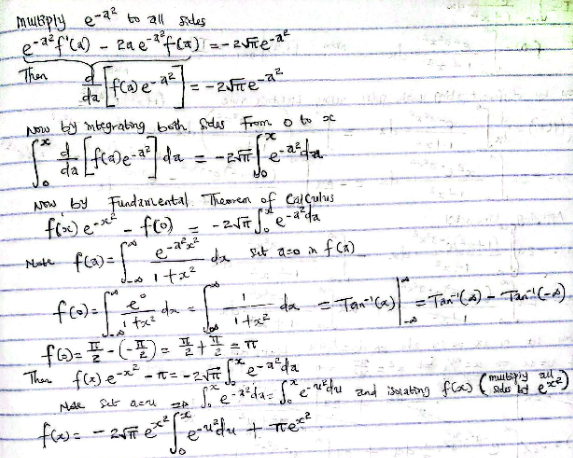 multiply e^{-a²} to all sides
e^{-a²}f'(a) - 2a e^{-a²}f(a) = -2√π e^{-a²}
Then d/da [f(a)e^{-a²}] = -2√π e^{-a²}
Now by integrating both sides from 0 to x
∫₀ˣ d/da [f(a)e^{-a²}] da = -2√π ∫₀ˣ e^{-a²}da
Now by Fundamental Theorem of Calculus
f(x) e^{-x²} - f(0) = -2√π ∫₀ˣ e^{-a²}da
Note f(a) = ∫_{-∞}^{∞} e^{-a²x²}/(1+x²) dx Set a=0 in f(a)
f(0) = ∫_{-∞}^{∞} e⁰/(1+x²) dx = ∫_{-∞}^{∞} 1/(1+x²) dx = Tan⁻¹(x)|_{-∞}^{∞} = Tan⁻¹(∞) - Tan⁻¹(-∞)
f(0) = π/2 - (-π/2) = π/2 + π/2 = π
Then f(x) e^{-x²} - π = -2√π ∫₀ˣ e^{-a²}da
Note Set a=u ⇒ ∫₀ˣ e^{-a²}da = ∫₀ˣ e^{-u²}du and isolating f(x) (multiply all sides by e^{x²})
f(x) = -2√π e^{x²} ∫₀ˣ e^{-u²}du + πe^{x²}